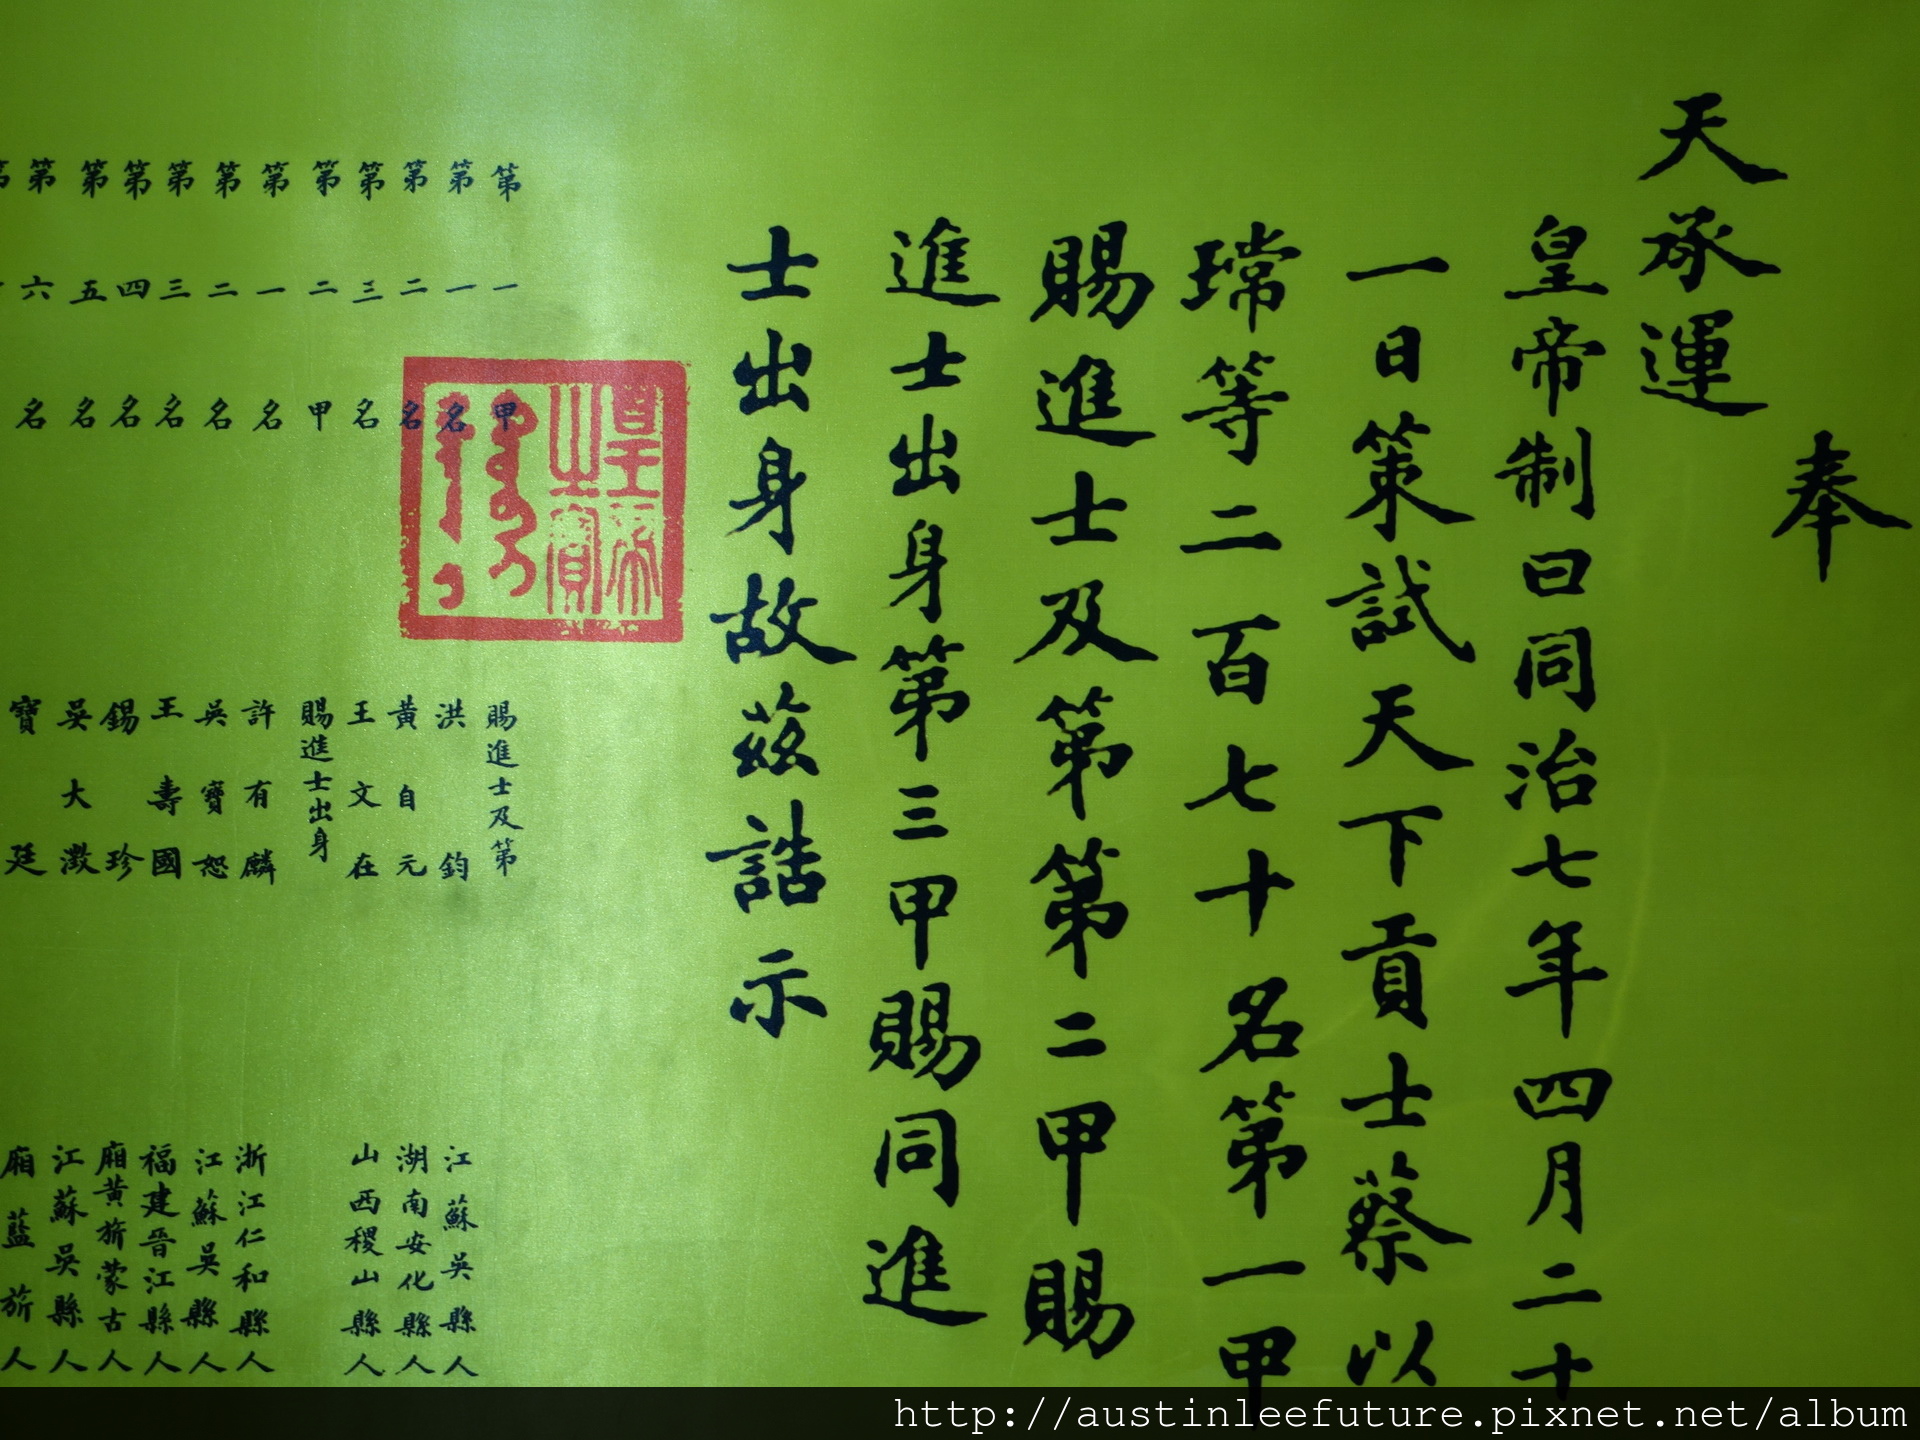 奉
天承運
皇帝制曰同治七年四月二十
一日策試天下貢士蔡以
瑺等二百七十名第一甲
賜進士及第第二甲賜
進士出身第三甲賜同進
士出身故茲誥示
皇帝
之寶
第一甲 賜進士及第
第一名 洪鈞 江蘇吳縣人
第二名 黃自元 湖南安化縣人
第三名 王文在 山西稷山縣人
第二甲 賜進士出身
第一名 許有麟 浙江仁和縣人
第二名 吳寶恕 江蘇吳縣人
第三名 王壽國 福建晉江縣人
第四名 錫珍 廂黃旂蒙古人
第五名 吳大澂 江蘇吳縣人
第六名 寶廷 廂藍旂人
http://austinleefuture.pixnet.net/album